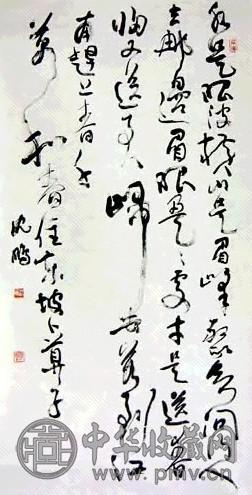 水是眼波横山是眉峰聚欲问行人
去那边眉眼盈盈处才是送春
归又送君归去若到江
南赶上春千
万和春住东坡卜算子
沈鹏
中华收藏网
www.pmv.cn